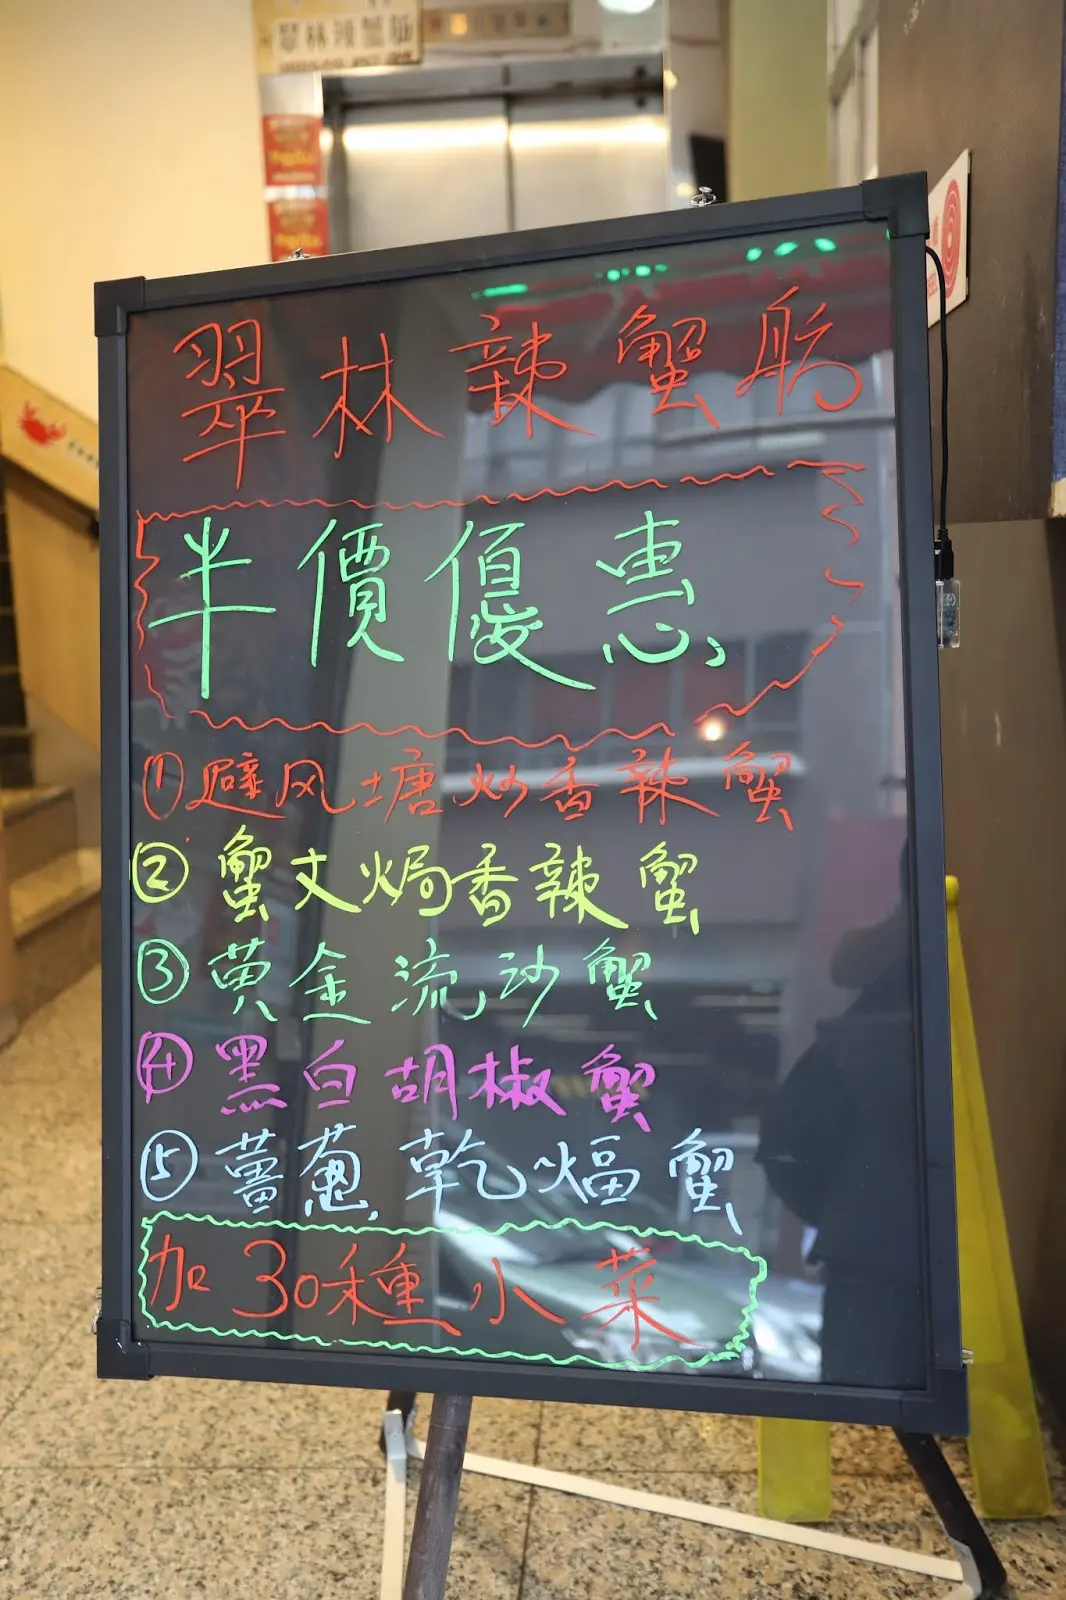 翠林辣蟹舫
翠林辣蟹舫
半價優惠
①避风塘炒香辣蟹
②蟹丈焗香辣蟹
③黄金流沙蟹
④黑白胡椒蟹
⑤薑葱乾煏蟹
加30種小菜